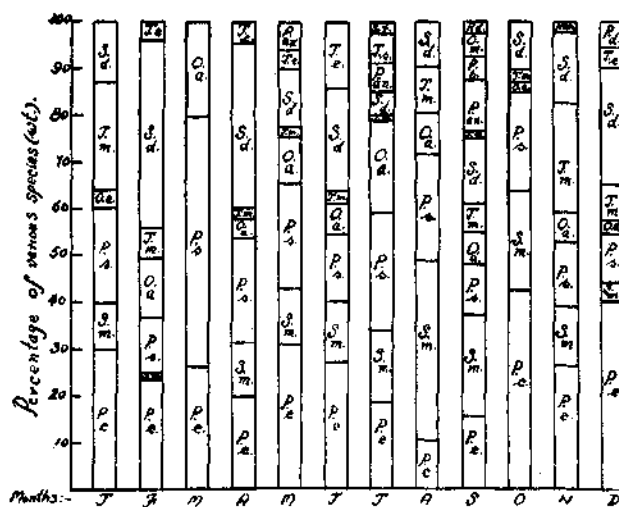 Percentage of various species (wt).
100
90
80
70
60
50
40
30
20
10
S. d.
T. m.
O.a.
P. s.
S. m.
P. e
T.e
S. d.
T. m.
O. a
P. s
P. e.
O. a.
P. s
P. e.
T. e.
S. d
T.m
O.a.
P. s
S. m.
P. e.
P. an
T.e.
S. d
T.m.
O. a
P. s
S. m.
P. e
T. e.
S. d
T.m
O. a.
P. s
S. m.
P. e
T. s.
P. an.
S. d.
O. a
P. s
S. m.
P. e
S. d
T. m.
O. a
P. s.
S. m.
P. e
O. m.
P. s.
P. an.
S. d.
T. m.
O. a
P. s.
S. m.
P. e.
S. d
T.m
O.a.
P. s
S. m.
P. e
S. d
T. m
O. a.
P. s.
S. m
P. e
P. d.
T.e.
S. d.
T. m
O.a
P. s
P. e
Months:- J F M A M J J A S O N D